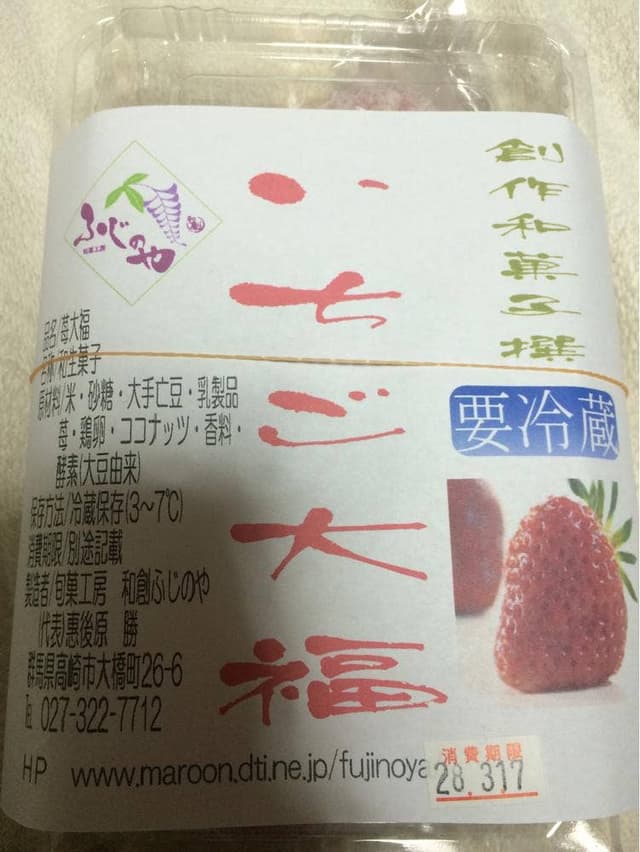 創作和菓子撰
いちご大福
ふじのや
和菓工房
品名/苺大福
名称/和生菓子
原材料/米・砂糖・大手亡豆・乳製品
苺・鶏卵・ココナッツ・香料・
酵素(大豆由来)
保存方法/冷蔵保存(3~7℃)
消費期限/別途記載
製造者/旬菓工房 和創ふじのや
(代表)恵後原 勝
群馬県高崎市大橋町26-6
℡ 027-322-7712
HP www.maroon.dti.ne.jp/fujinoya
要冷蔵
消費期限
28.3.17